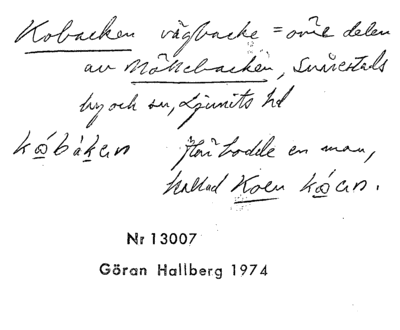 Kobacken vägbacke = övre delen
av Möllebacken, Svärestads
by och sn, Ljunits hd
Här bodde en man,
kallad Koen
Nr 13007
Göran Hallberg 1974